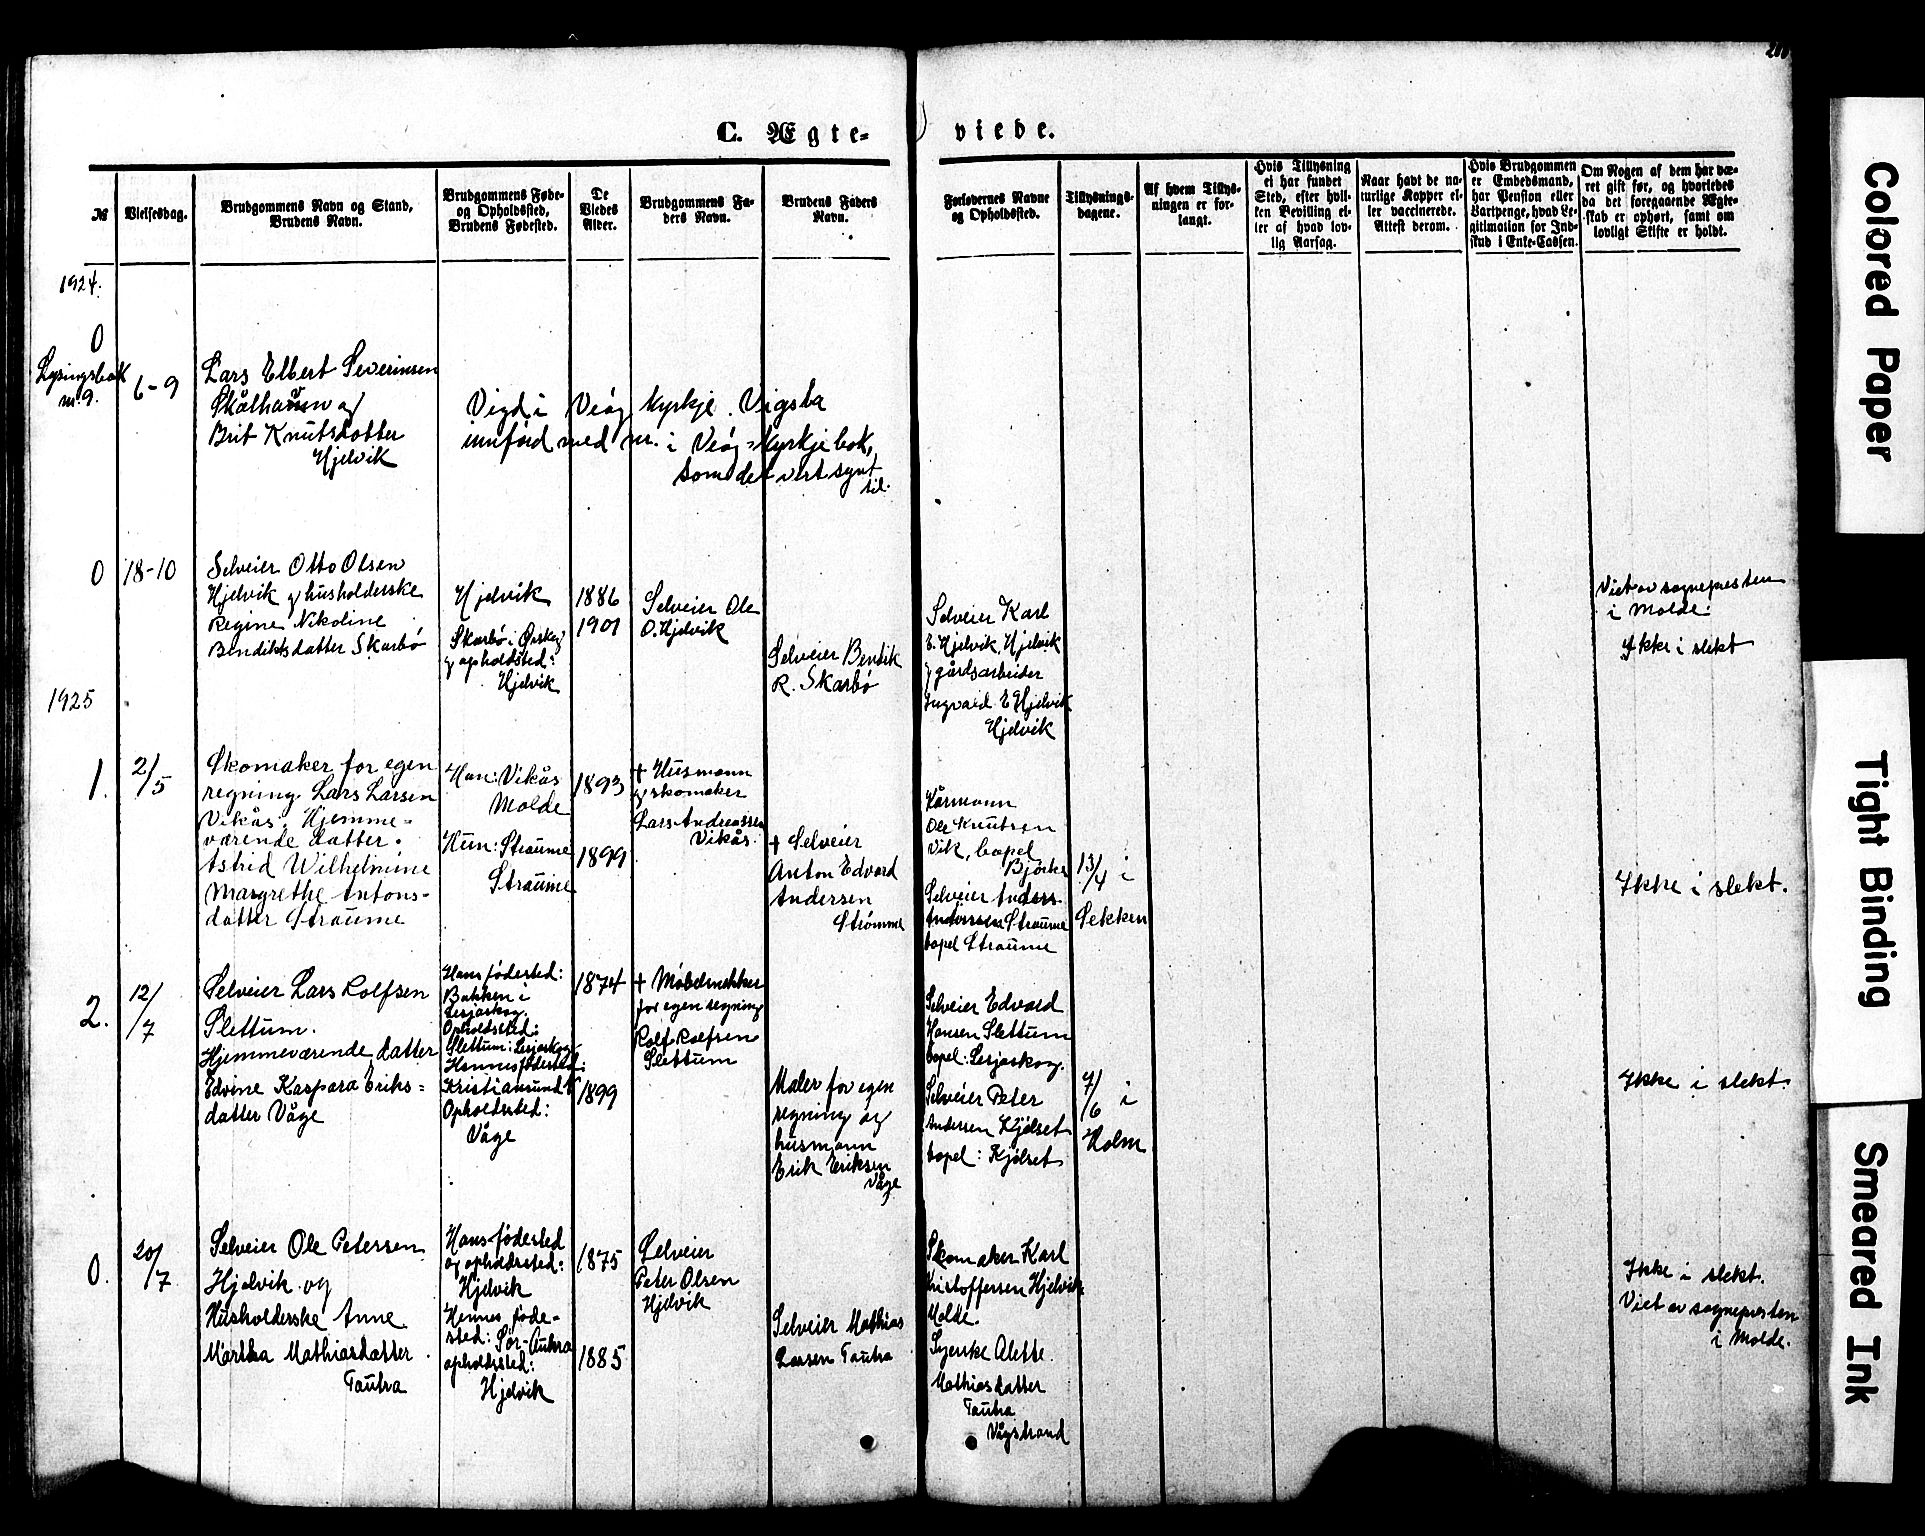 C. Ægte-
viede.
№
Vielsesdag.
Brudgommens Navn og Stand,
Brudens Navn.
Brudgommens Føde-
og Opholdssted,
Brudens Fødested.
De
Viedes
Alder.
Brudgommens Fa-
ders Navn.
Brudens Faders
Navn.
Forlovernes Navne
og Opholdssted.
Tillysnings-
dagene.
Af hvem Tillys-
ningen er for-
langt.
Hvis Tillysning
ei har fundet
Sted, efter hvil-
ken Bevilling el-
ler af hvad lov-
lig Aarsag.
Naar havt de na-
turlige Kopper el-
ler vaccinerede.
Attest derom.
Hvis Brudgommen
er Embedsmand,
har Pension eller
Vartpenge, hvad Le-
gitimation for Ind-
skud i Enke-Cassen.
Om Nogen af dem har væ-
ret gift før, og hvorledes
da det foregaaende Ægte-
skab er ophørt, samt om
lovligt Skifte er holdt.
1924.
0
Lysingsbok
nr. 9.
6-9
Lars Elbert Severinsen
Skålhavn og
Brit Knutsdatter
Hjelvik
Vigd i Veøy kyrkje. Vigsla
innførd med nr. i Veøy-kyrkjebok,
som det vert synt
til.
0
18-10
Selveier Otto Olsen
Hjelvik og husholderske
Regine Nikoline
Bendiksdatter Skarbø
Hjelvik
Skarbø i Ørskog
og opholdsted:
Hjelvik
1886
1901
Selveier Ole
O. Hjelvik
Selveier Bendik
R. Skarbø
Selveier Karl
E. Hjelvik, Hjelvik
og gårdsarbeider
Ingvald E Hjelvik
Hjelvik
Viet av sognepresten
i Molde.
Ikke i slekt
1925
1.
2/5
Skomaker for egen
regning. Lars Larsen
Vikås. Hjemme-
værende datter.
Astrid Wilhelmine
Margrethe Antons-
datter Straume
Han: Vikås
Molde
Hun: Straume
Straume
1893
1899
+ Husmann
og skomaker
Lars Andreassen
Vikås.
+ Selveier
Anton Edvard
Andersen
Strømme
Kårmann
Ole Knutsen
Vik, bopel
Selveier Anders
Anderssen Straume
bopel Straume
13/4 i
Sekken
Ikke i slekt.
2.
12/7
Selveier Lars Rolfsen
Slettum.
Hjemmeværende datter
Edvine Kaspara Eriks-
datter Våge
Hans fødested:
Bakken i
Lesjaskog.
Opholdssted:
Slettum: Lesjaskog
Hennes fødested:
Kristiansund N
Opholdssted:
Våge
1874
1899
+ Møbelsnekker
for egen regning
Rolf Rolfsen
Slettum
Maler for egen
regning og
husmann
Erik Eriksen
Våge
Selveier Edvard
Hansen Slettum
bopel: Lesjaskog.
Selveier Peter
Andersen Kjølset
bopel: Kjølset
7/6 i
Holm
Ikke i slekt.
0.
20/7
Selveier Ole Petersen
Hjelvik og
Husholderske Anne
Martha Mathiasdatter
Tautra
Hans fødested
og opholdssted:
Hjelvik
Hennes føde-
sted: Sør-Aukra
opholdssted:
Hjelvik
1875
1885
Selveier
Peter Olsen
Hjelvik
Selveier Mathias
Larsen Tautra
Skomaker Karl
Kristoffersen Hjelvik
Molde.
Syerske Alette
Mathiasdatter
Tautra
Vågstrand
Ikke i slekt.
Viet av sognepresten
i Molde.
Colored Paper
Tight Binding
Smeared Ink